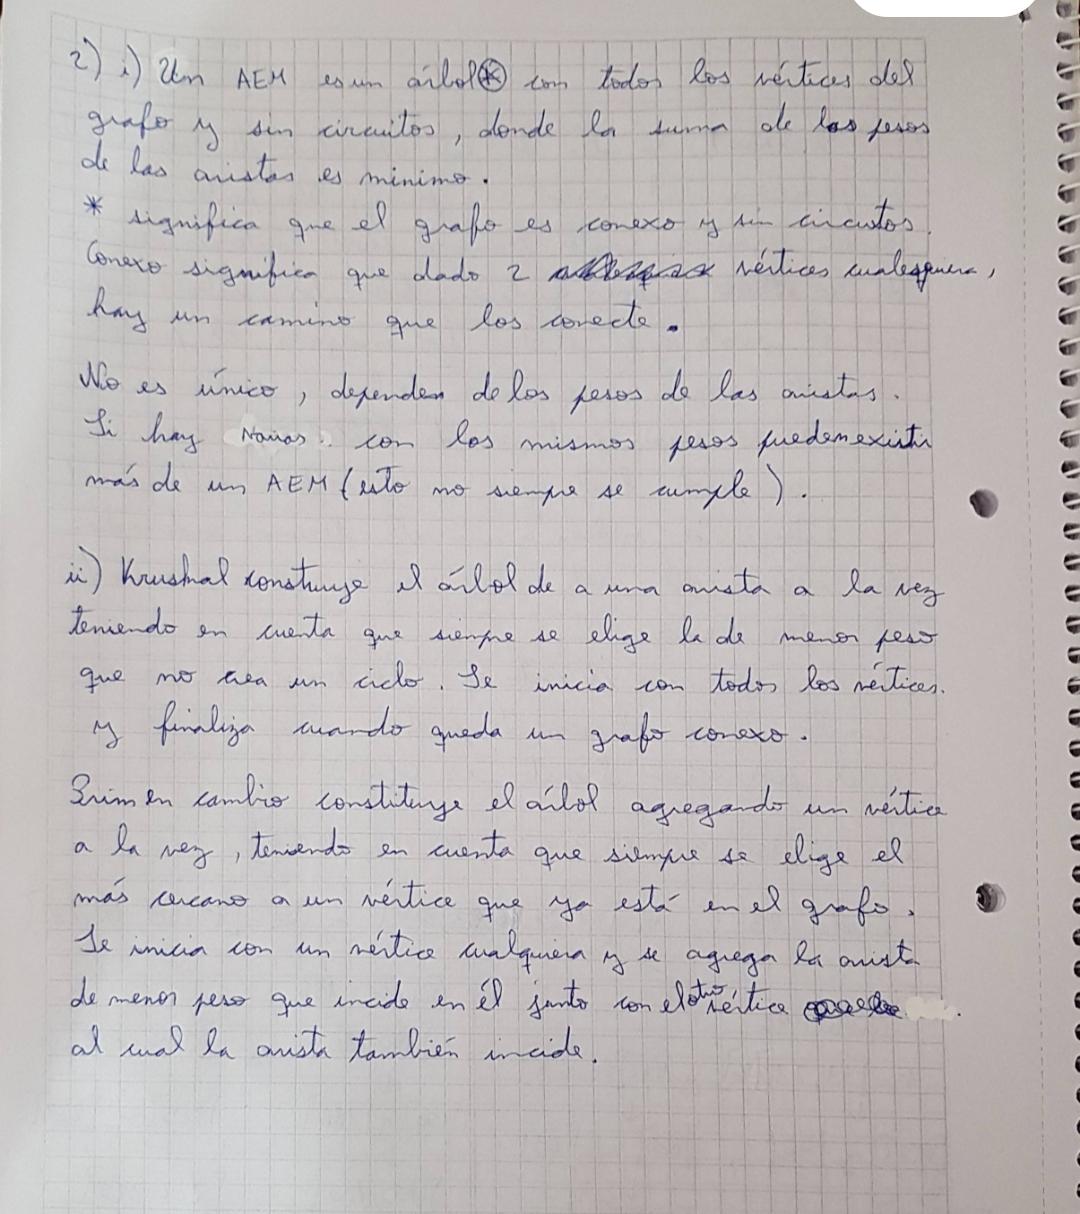 2) i) Un AEM es un árbol * con todos los vértices del
grafo y sin circuitos, donde la suma de los pesos
de las aristas es mínimo.
* significa que el grafo es conexo y sin circuitos.
Conexo significa que dado 2 vértices cualesquiera,
hay un camino que los conecte.
No es único, depende de los pesos de las aristas.
Si hay varias con los mismos pesos pueden existir
más de un AEM (esto no siempre se cumple).
ii) Kruskal construye el árbol de a una arista a la vez
teniendo en cuenta que siempre se elige la de menor peso
que no crea un ciclo. Se inicia con todos los vértices.
y finaliza cuando queda un grafo conexo.
Prim en cambio constituye el árbol agregando un vértice
a la vez, teniendo en cuenta que siempre se elige el
más cercano a un vértice que ya está en el grafo.
Se inicia con un vértice cualquiera y se agrega la arista
de menor peso que incide en él junto con el otro vértice
al cual la arista también incide.